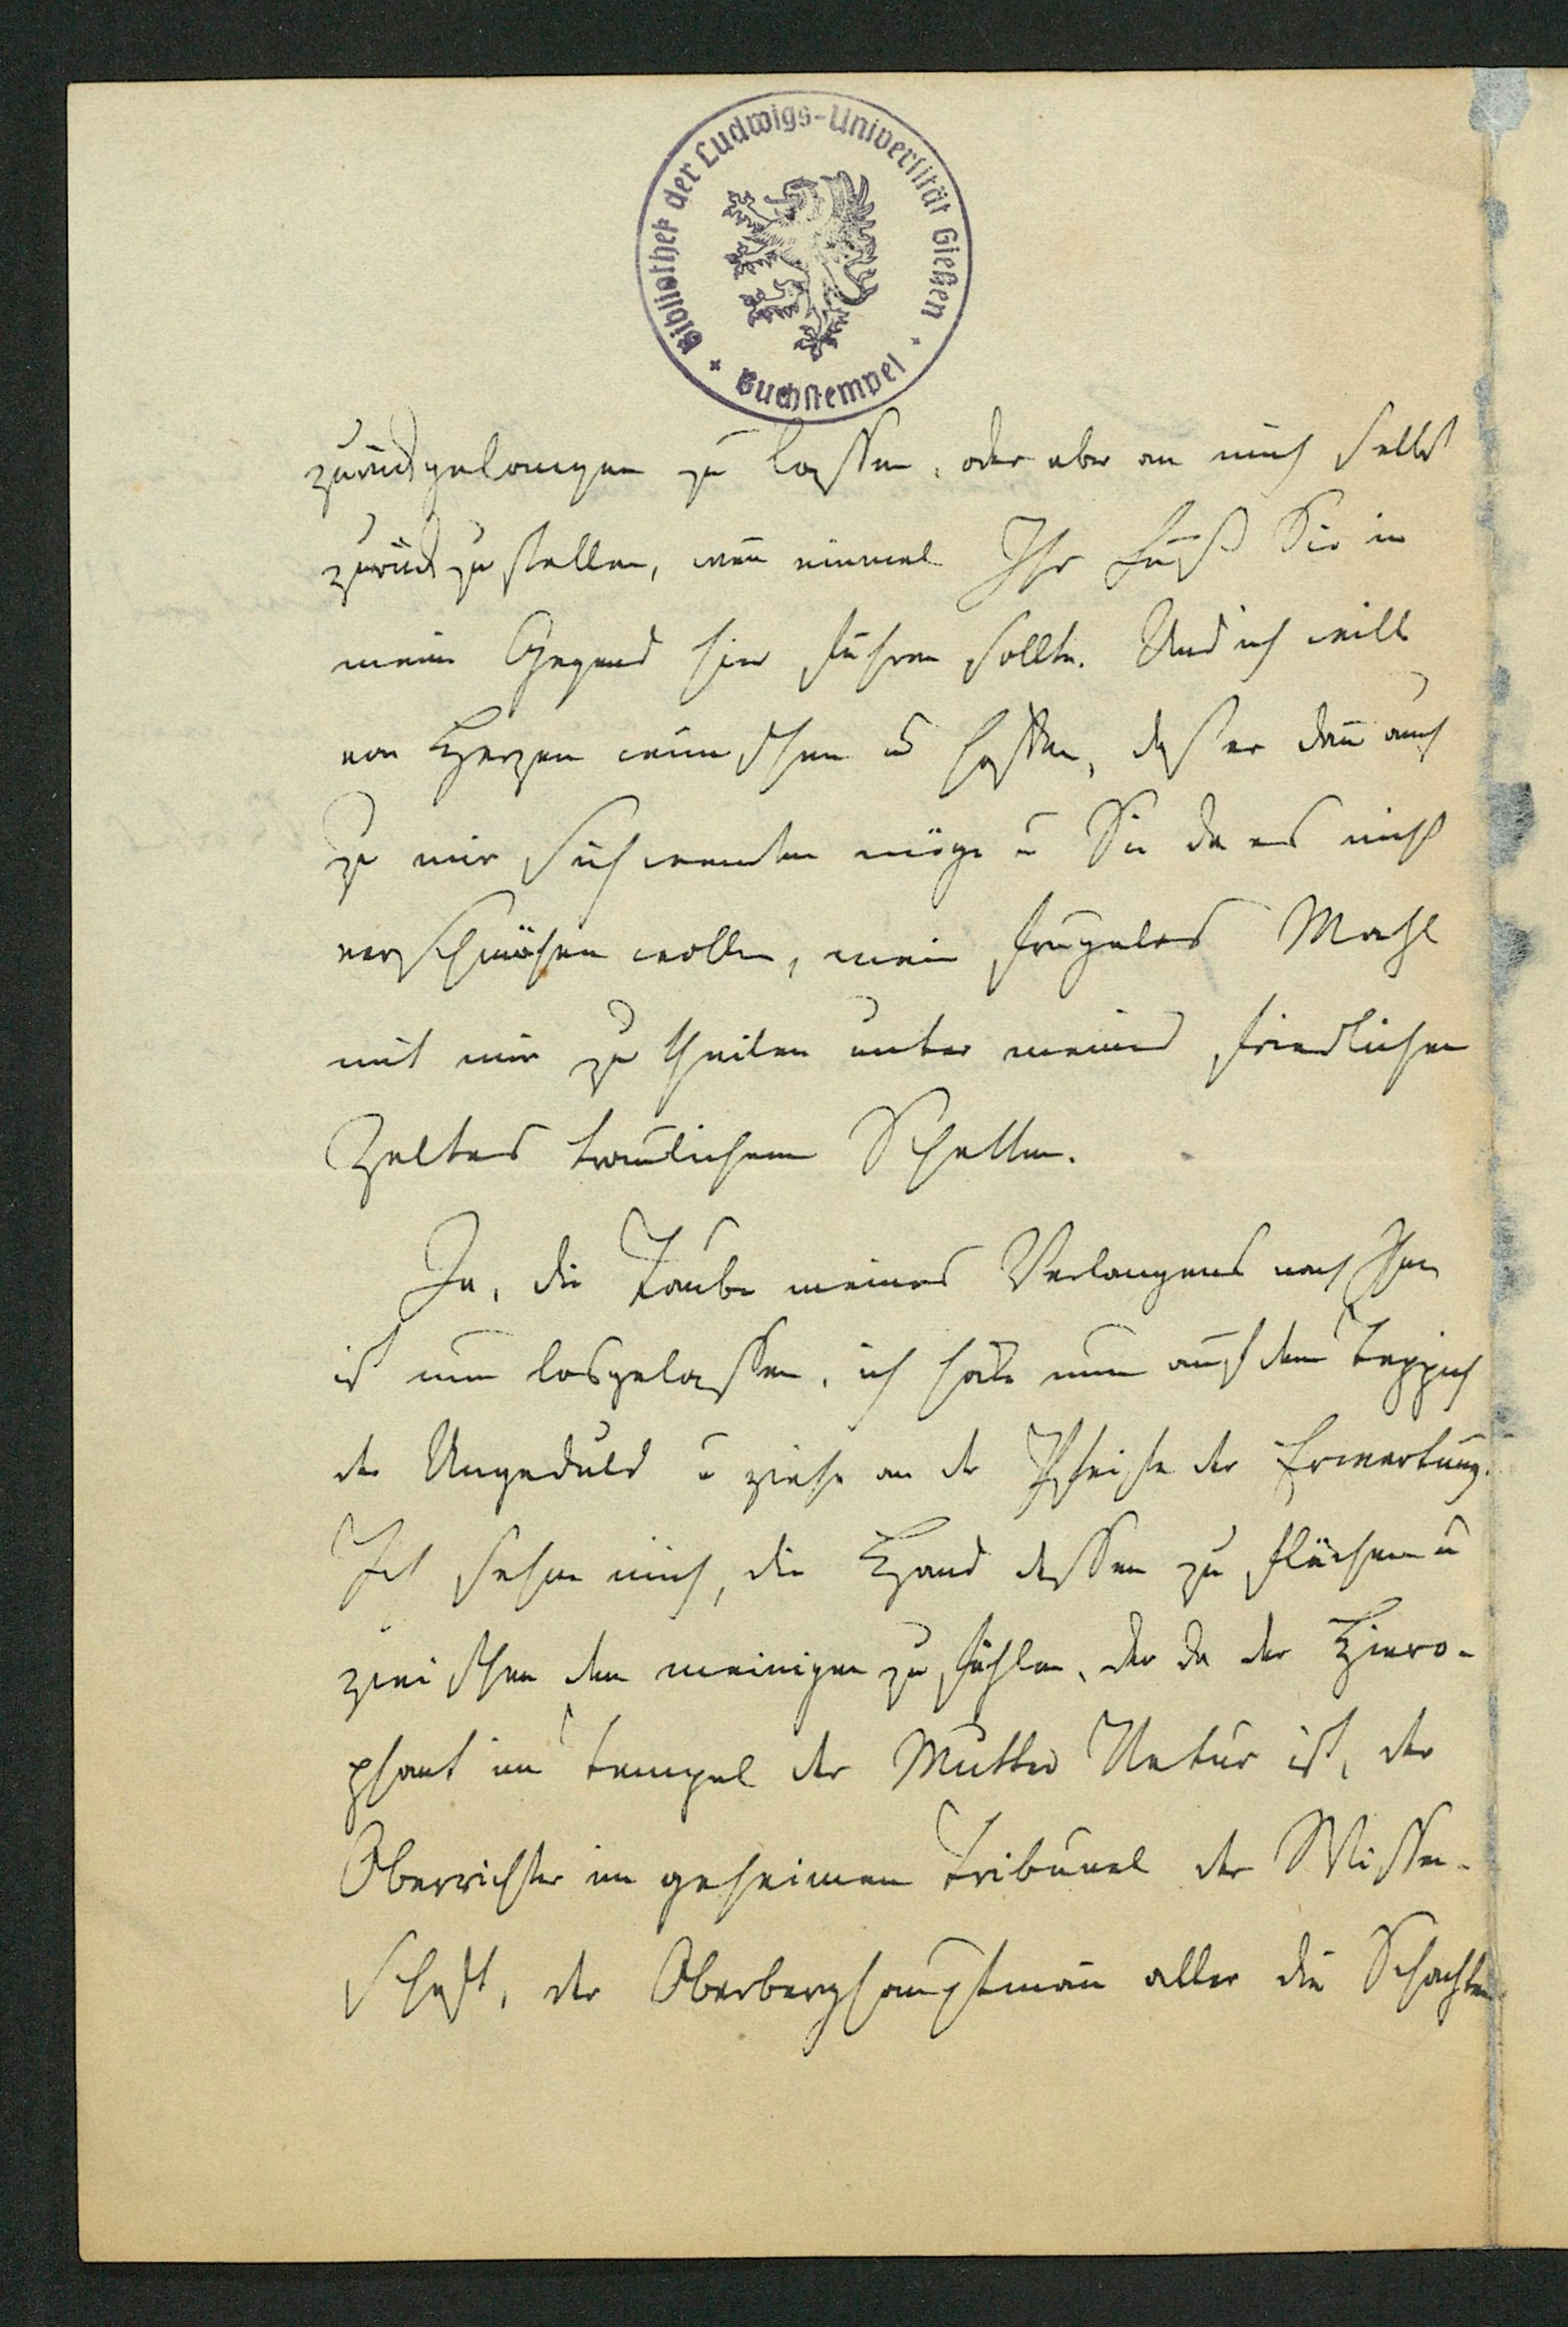 Bibliothek der Ludwigs-Universität Gießen
* Buchstempel *
zurückgelangen zu lassen, oder aber an mich selbst
zurückzustellen, weñ einmal Ihr Fuß Sie in
meine Gegend hier führen sollte. Und ich will
von Herzen wünschen u hoffen, daß er dañ auch
zu mir sich wenden möge u Sie da es nicht
verschmähen wollen, mein frugales Mahl
mit mir zu theilen unter meines friedlichen
Zeltes traulichem Schatten.
Ja, die Taube meines Verlangens nach Ihnen
ist nun losgelassen, ich sitze nun auf dem Teppich
der Ungeduld u ziehe an der Pfeife der Erwartung.
Ich sehne mich, die Hand dessen zu
zwischen den meinigen zu fühlen, der da der Hiero-
phant im Tempel der Mutter Natur ist, der
Oberrichter im geheimen Tribunal der Wissen-
schaft, der Oberberghauptmañ aller die Schachten